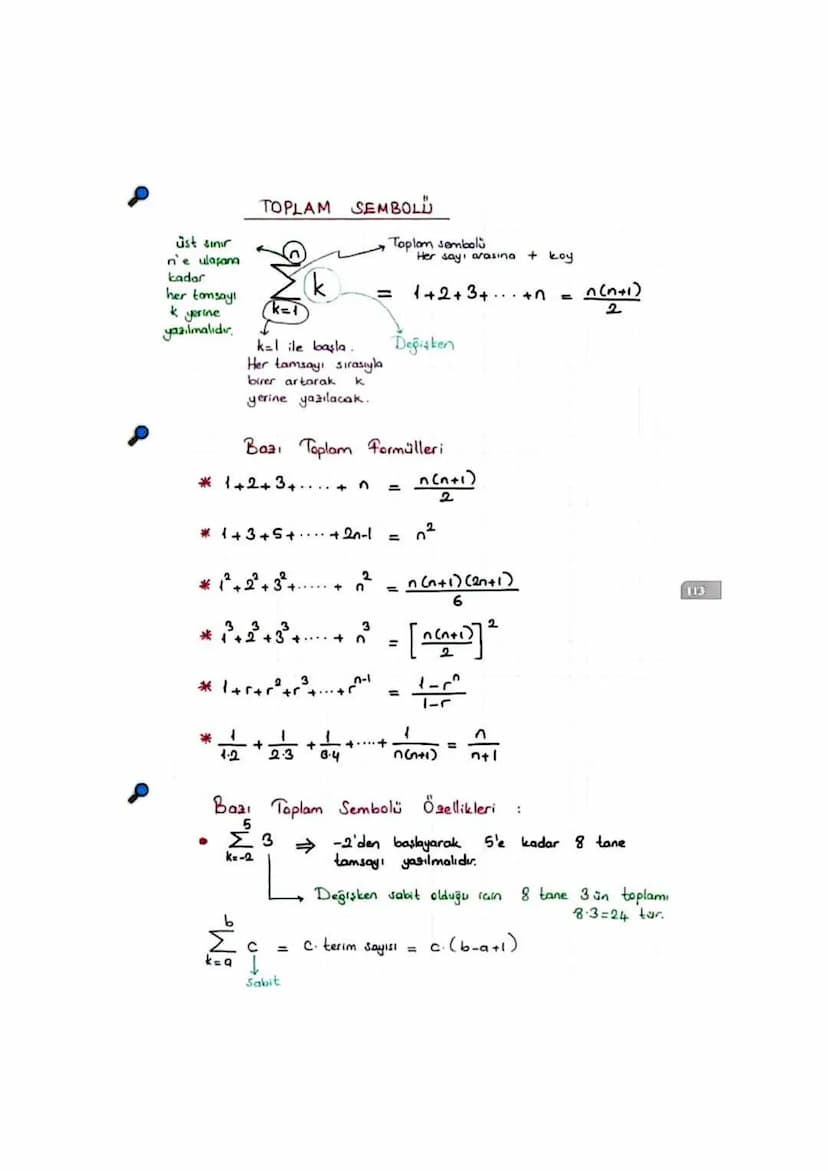 TOPLAM SEMBOLÜ
üst sınır
n'e ulaşana
kadar
her tamsayı
k yerine
yazılmalıdır.
Toplam sembolü
Her sayı arasına + koy
n
∑ k = 1+2+3+....+n = n(n+1)/2
k=1
k=1 ile başla.
Her tamsayı sırasıyla
birer artarak k
yerine yazılacak.
Değişken
Bazı Toplam Formülleri
* 1+2+3+.....+ n = n(n+1)/2
* 1+3+5+.....+2n-1 = n²
* 1²+2²+3²+.....+ n² = n(n+1)(2n+1)/6
* 1³+2³+3³+.....+ n³ = [n(n+1)/2]²
* 1+r+r²+r³+...+rⁿ⁻¹ = 1-rⁿ/1-r
* 1/1·2 + 1/2·3 + 1/3·4 +....+ 1/n(n+1) = n/n+1
113
Bazı Toplam Sembolü Özellikleri :
5
• ∑ 3 ⇒ -2'den başlayarak 5'e kadar 8 tane
k=-2
tamsayı yazılmalıdır.
Değişken sabit olduğu için 8 tane 3 ün toplamı
8·3=24 tür.
b
∑ c = c. terim sayısı = c.(b-a+1)
k=a
Sabit